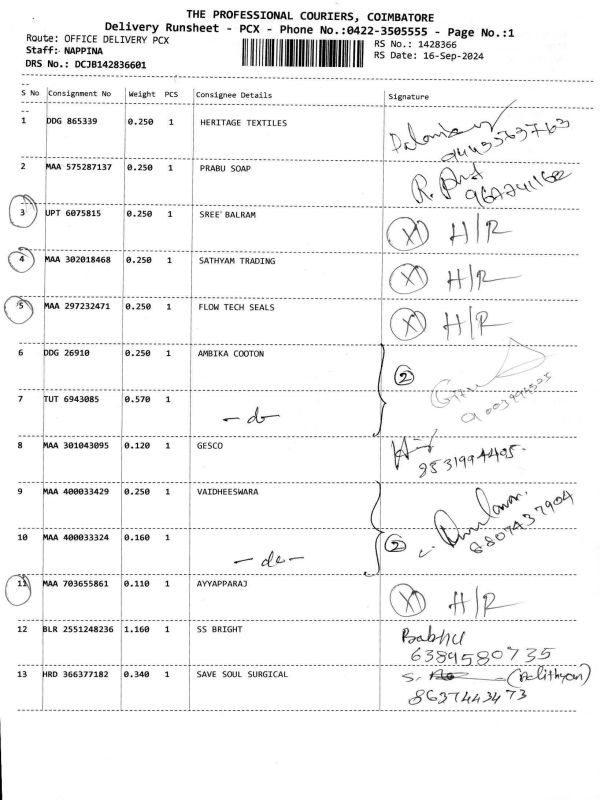 THE PROFESSIONAL COURIERS, COIMBATORE
Delivery Runsheet - PCX - Phone No.:0422-3505555 - Page No.:1
Route: OFFICE DELIVERY PCX
Staff: NAPPINA
DRS No.: DCJB142836601
RS No.: 1428366
RS Date: 16-Sep-2024
S No Consignment No Weight PCS Consignee Details Signature
1 DDG 865339 0.250 1 HERITAGE TEXTILES
9443563763
2 MAA 575287137 0.250 1 PRABU SOAP
3 UPT 6075815 0.250 1 SREE BALRAM X H/R
4 MAA 302018468 0.250 1 SATHYAM TRADING X H/R
5 MAA 297232471 0.250 1 FLOW TECH SEALS X H/R
6 DDG 26910 0.250 1 AMBIKA COOTON 2
7 TUT 6943085 0.570 1 - do -
8 MAA 301043095 0.120 1 GESCO
8531994405.
9 MAA 400033429 0.250 1 VAIDHEESWARA
8807437904
10 MAA 400033324 0.160 1 - do - 2
11 MAA 703655861 0.110 1 AYYAPPARAJ X H/R
12 BLR 2551248236 1.160 1 SS BRIGHT Babhu
6389580735
13 HRD 366377182 0.340 1 SAVE SOUL SURGICAL S.
8637443473